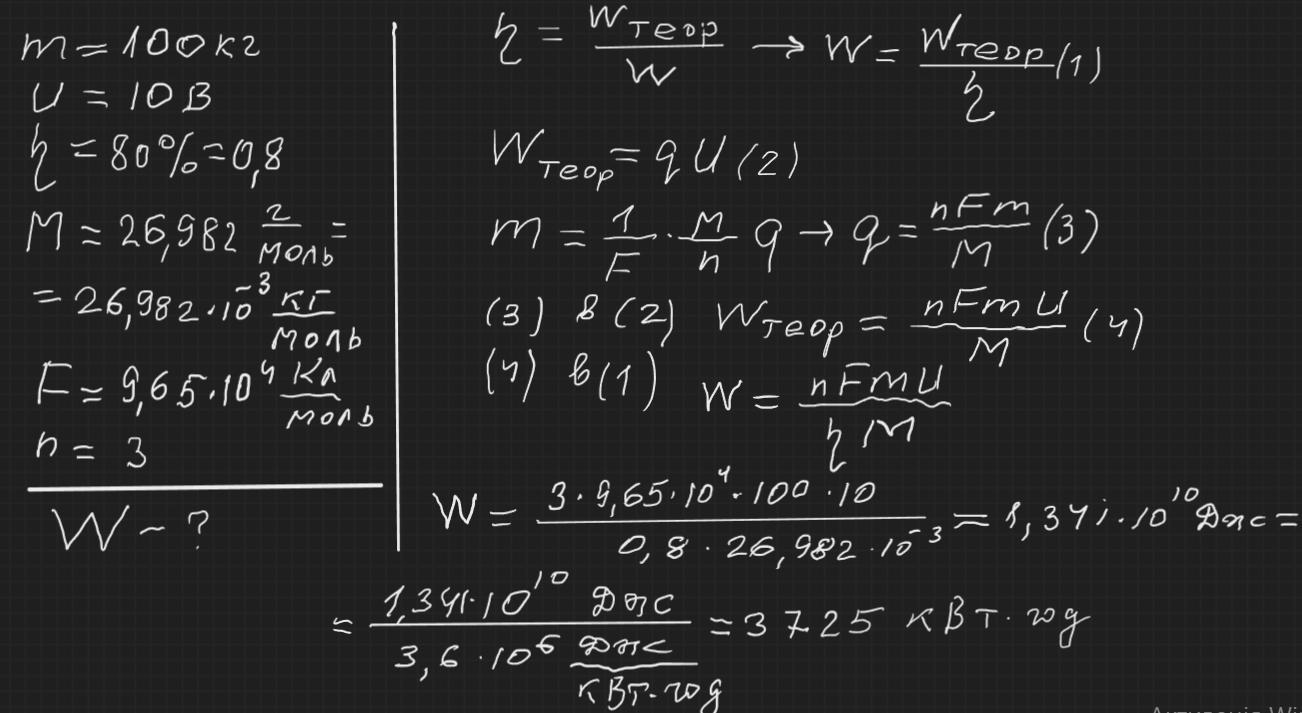 m = 100 кг
U = 10 В
η = 80% = 0,8
M = 26,982 г/моль =
= 26,982·10⁻³ кг/моль
F = 9,65·10⁴ Кл/моль
n = 3
W - ?
η = Wтеор/W → W = Wтеор/η (1)
Wтеор = qU (2)
m = 1/F · M/n q → q = nFm/M (3)
(3) в (2) Wтеор = nFmU/M (4)
(4) в (1) W = nFmU/ηM
W = 3·9,65·10⁴·100·10/0,8·26,982·10⁻³ = 1,341·10¹⁰ Дж =
= 1,341·10¹⁰ Дж/3,6·10⁶ Дж/кВт·год = 3725 кВт·год